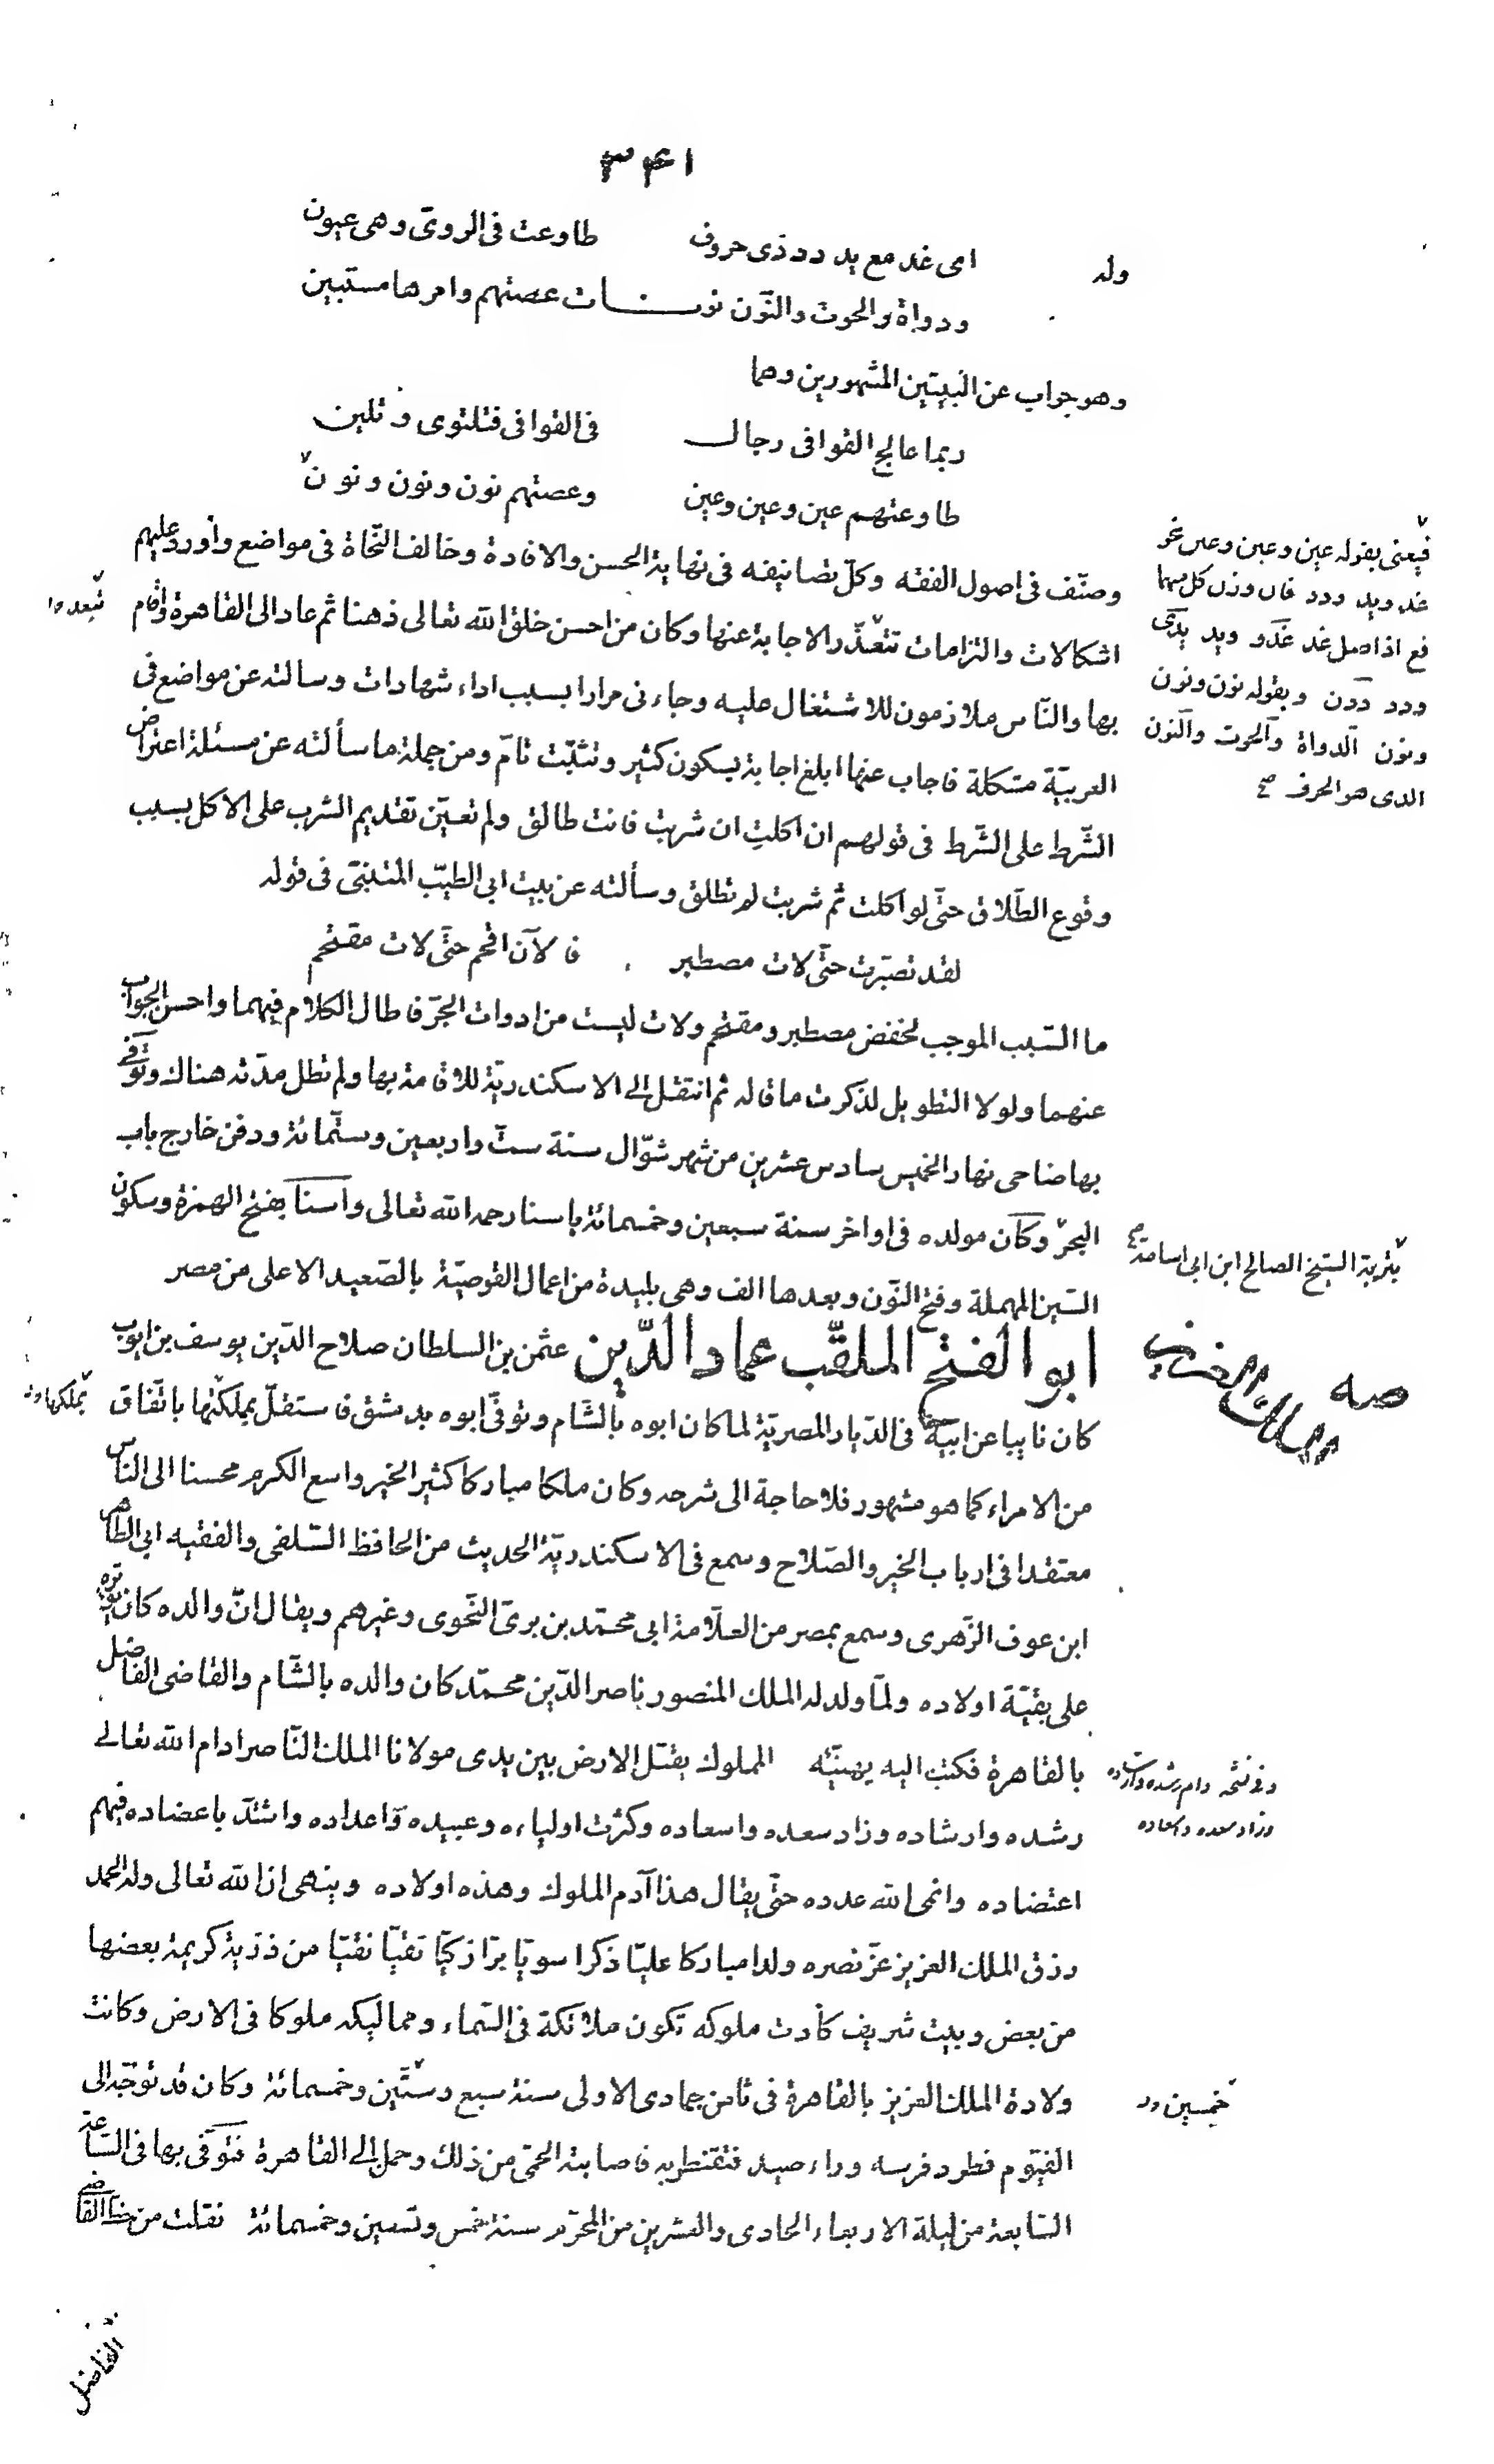 ٣٤١
وله
اى غد مع يد دد ذى حروف    طاوعت فى الروىّ وهى عيون
ودواة والحوت والنّون نونات    عصتهم وامرها مستبين
وهو جواب عن البيتين المشهورين وهما
ربما عالج القوافى رجال    فى القوافى فتلتوى وتلين
طاوعتهم عين وعين وعين    وعصتهم نون ونون ونون
وصنّف فى اصول الفقه وكلّ تصانيفه فى نهاية الحسن والافادة وخالف النّحاة فى مواضع وأورد عليهم
اشكالات والتزامات تتعّذّر الاجابة عنها وكان من احسن خلق الله تعالى ذهنا ثم عاد الى القاهرة وأقام
بها والنّاس ملازمون للاشتغال عليه وجاءنى مرارا بسبب اداء شهادات وسالته عن مواضع فى
العربيّة مشكلة فاجاب عنها ابلغ اجابة بسكون كثير وتثبّت تامّ ومن جملة ما سألته عن مسئلة اعتراض
الشّرط على الشّرط فى قولهم ان اكلتِ ان شربت فانت طالق ولم تعيّن تقديم الشرب على الاكل بسبب
وقوع الطّلاق حتّى لو اكلت ثم شربت لم تطلق وسألته عن بيت ابى الطيّب المتنبّى فى قوله
لقد تصبّرت حتّى لات مصطبر    فالآن اقحم حتّى لات مقتحم
ما السّبب الموجب لخفض مصطبر ومقتحم ولات ليست من ادوات الجرّ فاطال الكلام فيهما واحسن الجواب
عنهما ولولا التطويل لذكرت ما قاله ثم انتقل الى الاسكندريّة للاقامة بها ولم تطل مدّته هناك وتوفّى
بها ضاحى نهار الخميس سادس عشرين من شهر شوّال سنة ستّ واربعين وستّمائة ودفن خارج باب
البحر وكان مولده فى اواخر سنة سبعين وخمسمائة باسنا رحمه الله تعالى واسنا بفتح الهمزة وسكون
السّين المهملة وفتح النّون وبعدها الف وهى بليدة من اعمال القوصيّة بالصّعيد الاعلى من مصر
ابو الفتح الملقّب عماد الدّين عثمن بن السلطان صلاح الدّين يوسف بن ايوب
كان نايبا عن ابيه فى الدّيار المصريّة لما كان ابوه بالشّام وتوفّى ابوه بدمشق فاستقلّ بملكتها باتّفاق
من الامراء كما هو مشهور فلا حاجة الى شرحه وكان ملكا مباركا كثير الخير واسع الكرم محسنا الى الناس
معتقدا فى ارباب الخير والصّلاح وسمع فى الاسكندريّة الحديث من الحافظ السّلفى والفقيه ابى الطاهر
ابن عوف الزّهرى وسمع بمصر من العلّامة ابى محمّد بن برىّ النّحوى وغيرهم ويقال انّ والده كان يؤثره
على بقيّة اولاده ولمّا ولد له الملك المنصور ناصر الدّين محمّد كان والده بالشّام والقاضى الفاضل
بالقاهرة فكتب اليه يهنّئه المملوك يقبّل الارض بين يدى مولانا الملك النّاصر ادام الله تعالى
رشده وارشاده وزاد سعده واسعاده وكثرت اولياءه وعبيده وأعداده واشتدّ باعضاده فيهم
اعتضاده وانمى الله عدده حتّى يقال هذا آدم الملوك وهذه اولاده وينهى ان الله تعالى وله الحمد
رزق الملك العزيز عزّ نصره ولدا مباركا عليّا ذكرا سويّا برّا زكيّا تقيّا نقيّا من ذرّية كريمة بعضها
من بعض وبيت شريف كادت ملوكه تكون ملائكة فى السّماء ومماليكه ملوكا فى الارض وكانت
ولادة الملك العزيز بالقاهرة فى ثامن جمادى الاولى سنة سبع وستّين وخمسمائة وكان قد توجّه الى
الفيّوم فطرد فرسه وراء صيد فتقنطر به فاصابته الحمّى من ذلك وحمل الى القاهرة فتوفّى بها فى السّاعة
السّابعة من ليلة الاربعاء الحادى والعشرين من المحرّم سنة خمس وتسعين وخمسمائة نقلت من خطّ القاضى
الفاضل
فيعنى بقوله عين وعين وعين نحو
غد ويد ودد فان وزن كل منهما
فع اذ اصل غد غدو ويد يدى
ودد ددن وبقوله نون ونون
ونون الدواة والحوت والنون
الذى هو الحرف صح
بتربة الشيخ الصالح ابن ابى اسامة صح
الملك العزيز
وفى نسخه دام رشده وارشاده
وزاد سعده واسعاده
خمسين
تبعد
بملكها